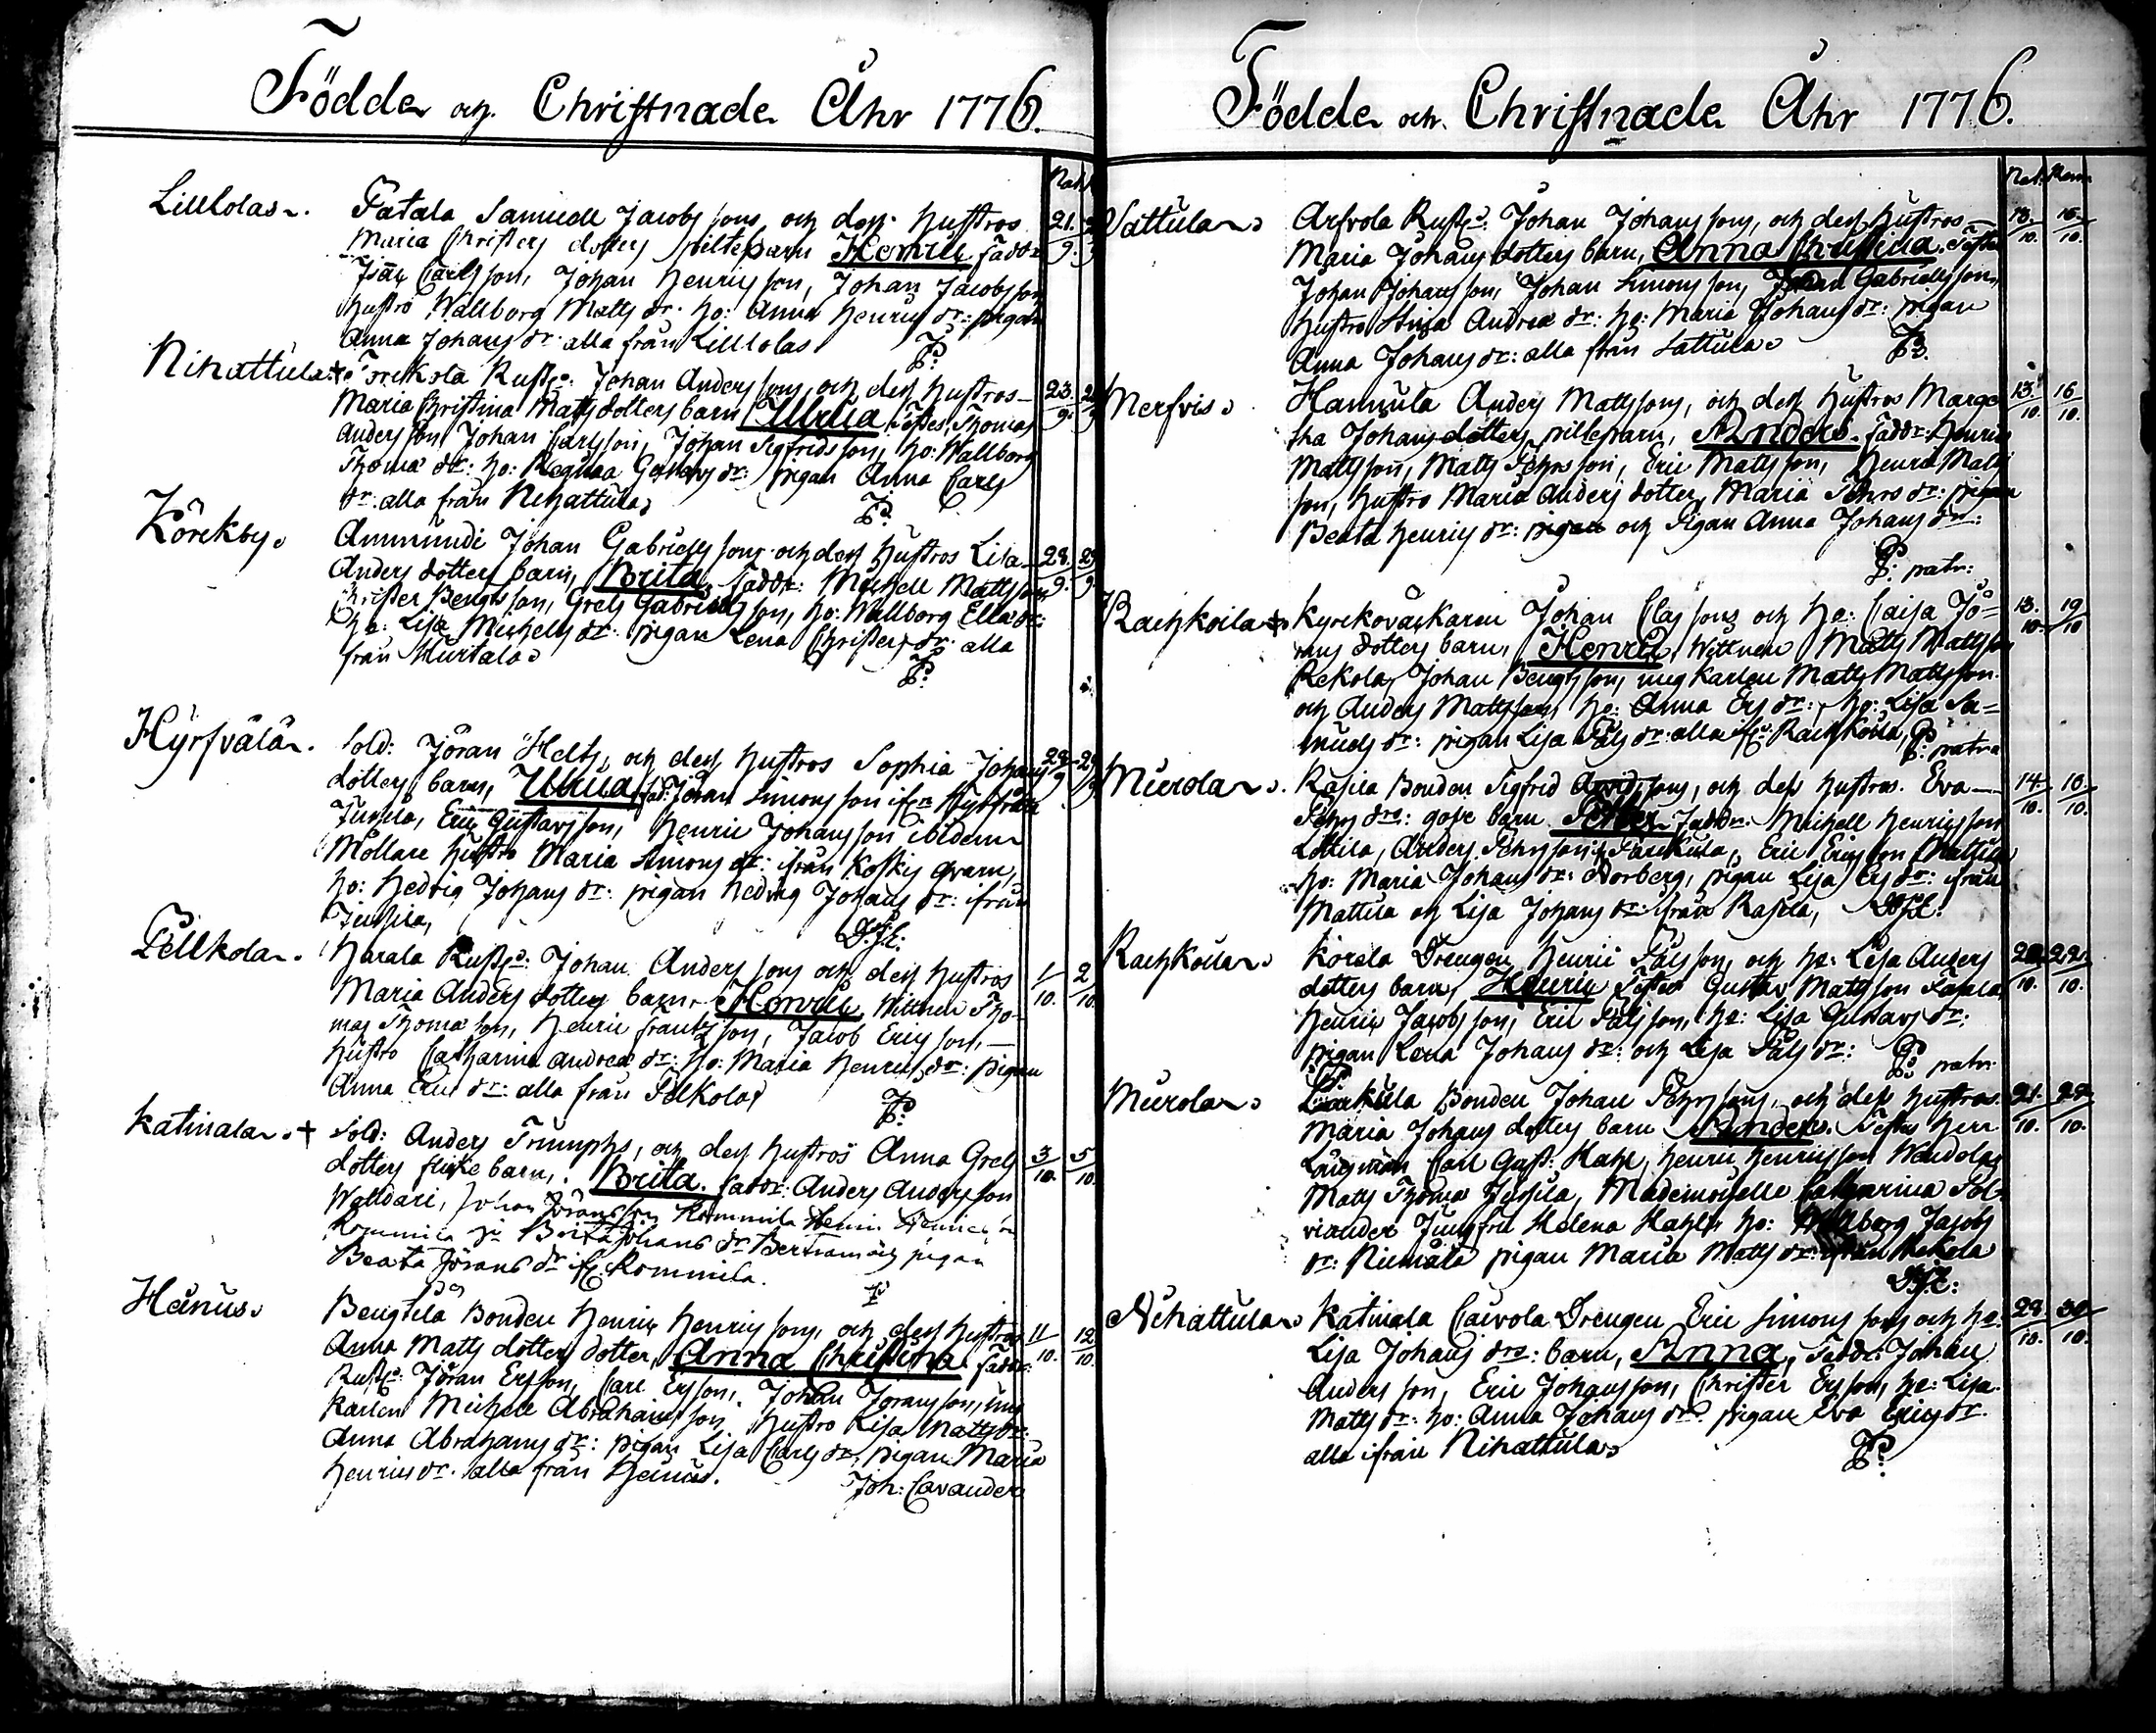 Födde och Christnade Åhr 1776.
Nat.
Lilllolas Tatala Samuell Jacobs sons och dess hustros 21.
Maria Christers dotters piltebarn Henric fadd: 9.
Isaac Carlsson, Johan Henricsson, Johan Jacobsson
hustro Wallborg Matts dr. ho: Anna Henrics dr: pigan
Anna Johans dr: alla från Lilllolas
Nihattula Johan Anders sons och dess hustros 23.
Maria Christina Matts dotters barn Ulrica Testes Thomas 9.
Andersson Johan Carlsson, Johan Sigfridsson, ho: Wallborg
Thomæ dr: ho: Regina Gustavs dr: pigan Anna Carls
dr: alla från Nihattula
Körekby Ammundi Johan Gabriels sons och dess hustros Lisa 28. 29
Anders dotters barn, Brita, faddr: Michell Mattsson 9. 9.
Christer Bengtsson, Grels Gabrielsson, ho: Wallborg Ella dr:
ho: Lisa Michells dr: pigan Lena Christers dr: alla
från Murtala
Hyrfvälä Sold: Jöran Helts, och dess hustros Sophia Johans 29
dotters barn, Ulrica, fad: Jöran Simonsson ifrn 9
Jussila, Eric Gustavsson, Henric Johansson ibidem
Möllare hustro Maria Simons dr: ifrån Koskis qvarn,
ho: Hedvig Johans dr: pigan Hedvig Johans dr: ifrån
Jussila,
Pellkola Harala Johan Anders sons och dess hustros 1 2
Maria Anders dotters barn Henric, Wittnen Tho- 10. 10
mas Thomasson, Henric Frantsson, Jacob Ericsson,
hustro Catharina Andreæ dr: ho: Maria Henrics dr: pigan
Anna dr: alla från Pelkola
Katinala + Sold: Anders Triumphs, och dess hustros Anna Grels 3 5
dotters flickebarn, Brita. faddr: Anders Andersson 10. 10.
Walldari, Johan Jöransson Rommila Henric
Brita Johans dr pigan
Beata Jörans dr ifr. Rommila.
Heinus Bengtilä Bonden Henric Henrics sons och dess hustros 11 12
Anna Matts dotters dotter, Anna Christina faddr: 10. 10.
Jöran Ersson, Carl Ersson, Johan Jöransson, ung
karlen Michell Abrahamsson hustro Lisa Matts dr:
Anna Abrahams dr: pigan Lisa Carls dr: pigan Maria
Henrics dr: alla från Heinus.
Joh: Cavander
Födde och Christnade Åhr 1776.
Nat. Ren.
Sattula Arfvola Johan Johans sons, och dess hustros 13. 15.
Maria Johans dotters barn, Anna Christina. Testes 10. 10.
Johan Johansson, Johan Simonsson, Johan Gabrielsson,
hustro Stina Andreæ dr: ho: Maria Johans dr: pigan
Anna Johans dr: alla från Sattula
Merfvis Hannula Anders Mattsons, och dess hustros Marge 13. 16
tha Johans dotters piltebarn, Anders. faddr: Henric 10. 10.
Mattsson, Matts Pehrsson, Eric Mattsson, Henric Matts
son, hustro Maria Anders dotter, Maria Pehrs dr: pigan
Beata Henrics dr: pigan och Pigan Anna Johans dr:
P: patr:
Rachkoila Kyrckovacktaren Johan Clas sons och ho: Caisa Jö- 13. 19
rans dotters barn, Henric, Wittnen Matts Mattsson 10. 10
Rekola, Johan Bengtsson, ung karlen Matts Mattsson
och Anders Mattsson, ho: Anna Ers dr: ho: Lisa Sa-
muels dr: pigan Lisa Påls dr: alla ifr: Rachkoila,
Murola Rasila Bonden Sigfrid Arvidsons, och dess hustros. Eva 14. 18
Pehrs drs: gosse barn Petter. faddr: Michell Henricsson 10. 10.
Lottila, Anders Pehrsson Parikula, Eric Ersson Mattila
ho: Maria Johans dr: Norberg, pigan Lisa Ers dr: ifrån
Mattila och Lisa Johans dr: ifrån Rasila,
Rachkoila Korsla Drengen Henric Pålsson, och ho: Lisa Anders 22.
dotters barn, Henric Testes Gustav Mattsson 10. 10.
Henric Jacobsson, Eric Pålsson, ho: Lisa Gustavs dr:
pigan Lena Johans dr: och Lisa Påls dr: P: patr:
Murola Bonden Johan Pehrsons, och dess hustros 21. 27
Maria Johans dotters barn Anders. Testes Herr 10. 10.
Länsman Carl Gust: Hahl, Henric Henricsson Wendola,
Matts Thomæ Jussila, Mademoiselle Catharina Pol-
viander Jungfru Helena Hahl ho: Wallborg Jacobs
dr: Niemälä pigan Maria Matts dr: ifrån Rekola
Nihattula Katinala Caivola Drengen Eric Simons sons och ho: 28. 30
Lisa Johans drs: barn, Anna, Faddr: Johan 10. 10.
Andersson, Eric Johansson, Christer Ersson, ho: Lisa
Matts dr: ho: Anna Johans dr: pigan Eva Erics dr.
alla ifrån Nihattula